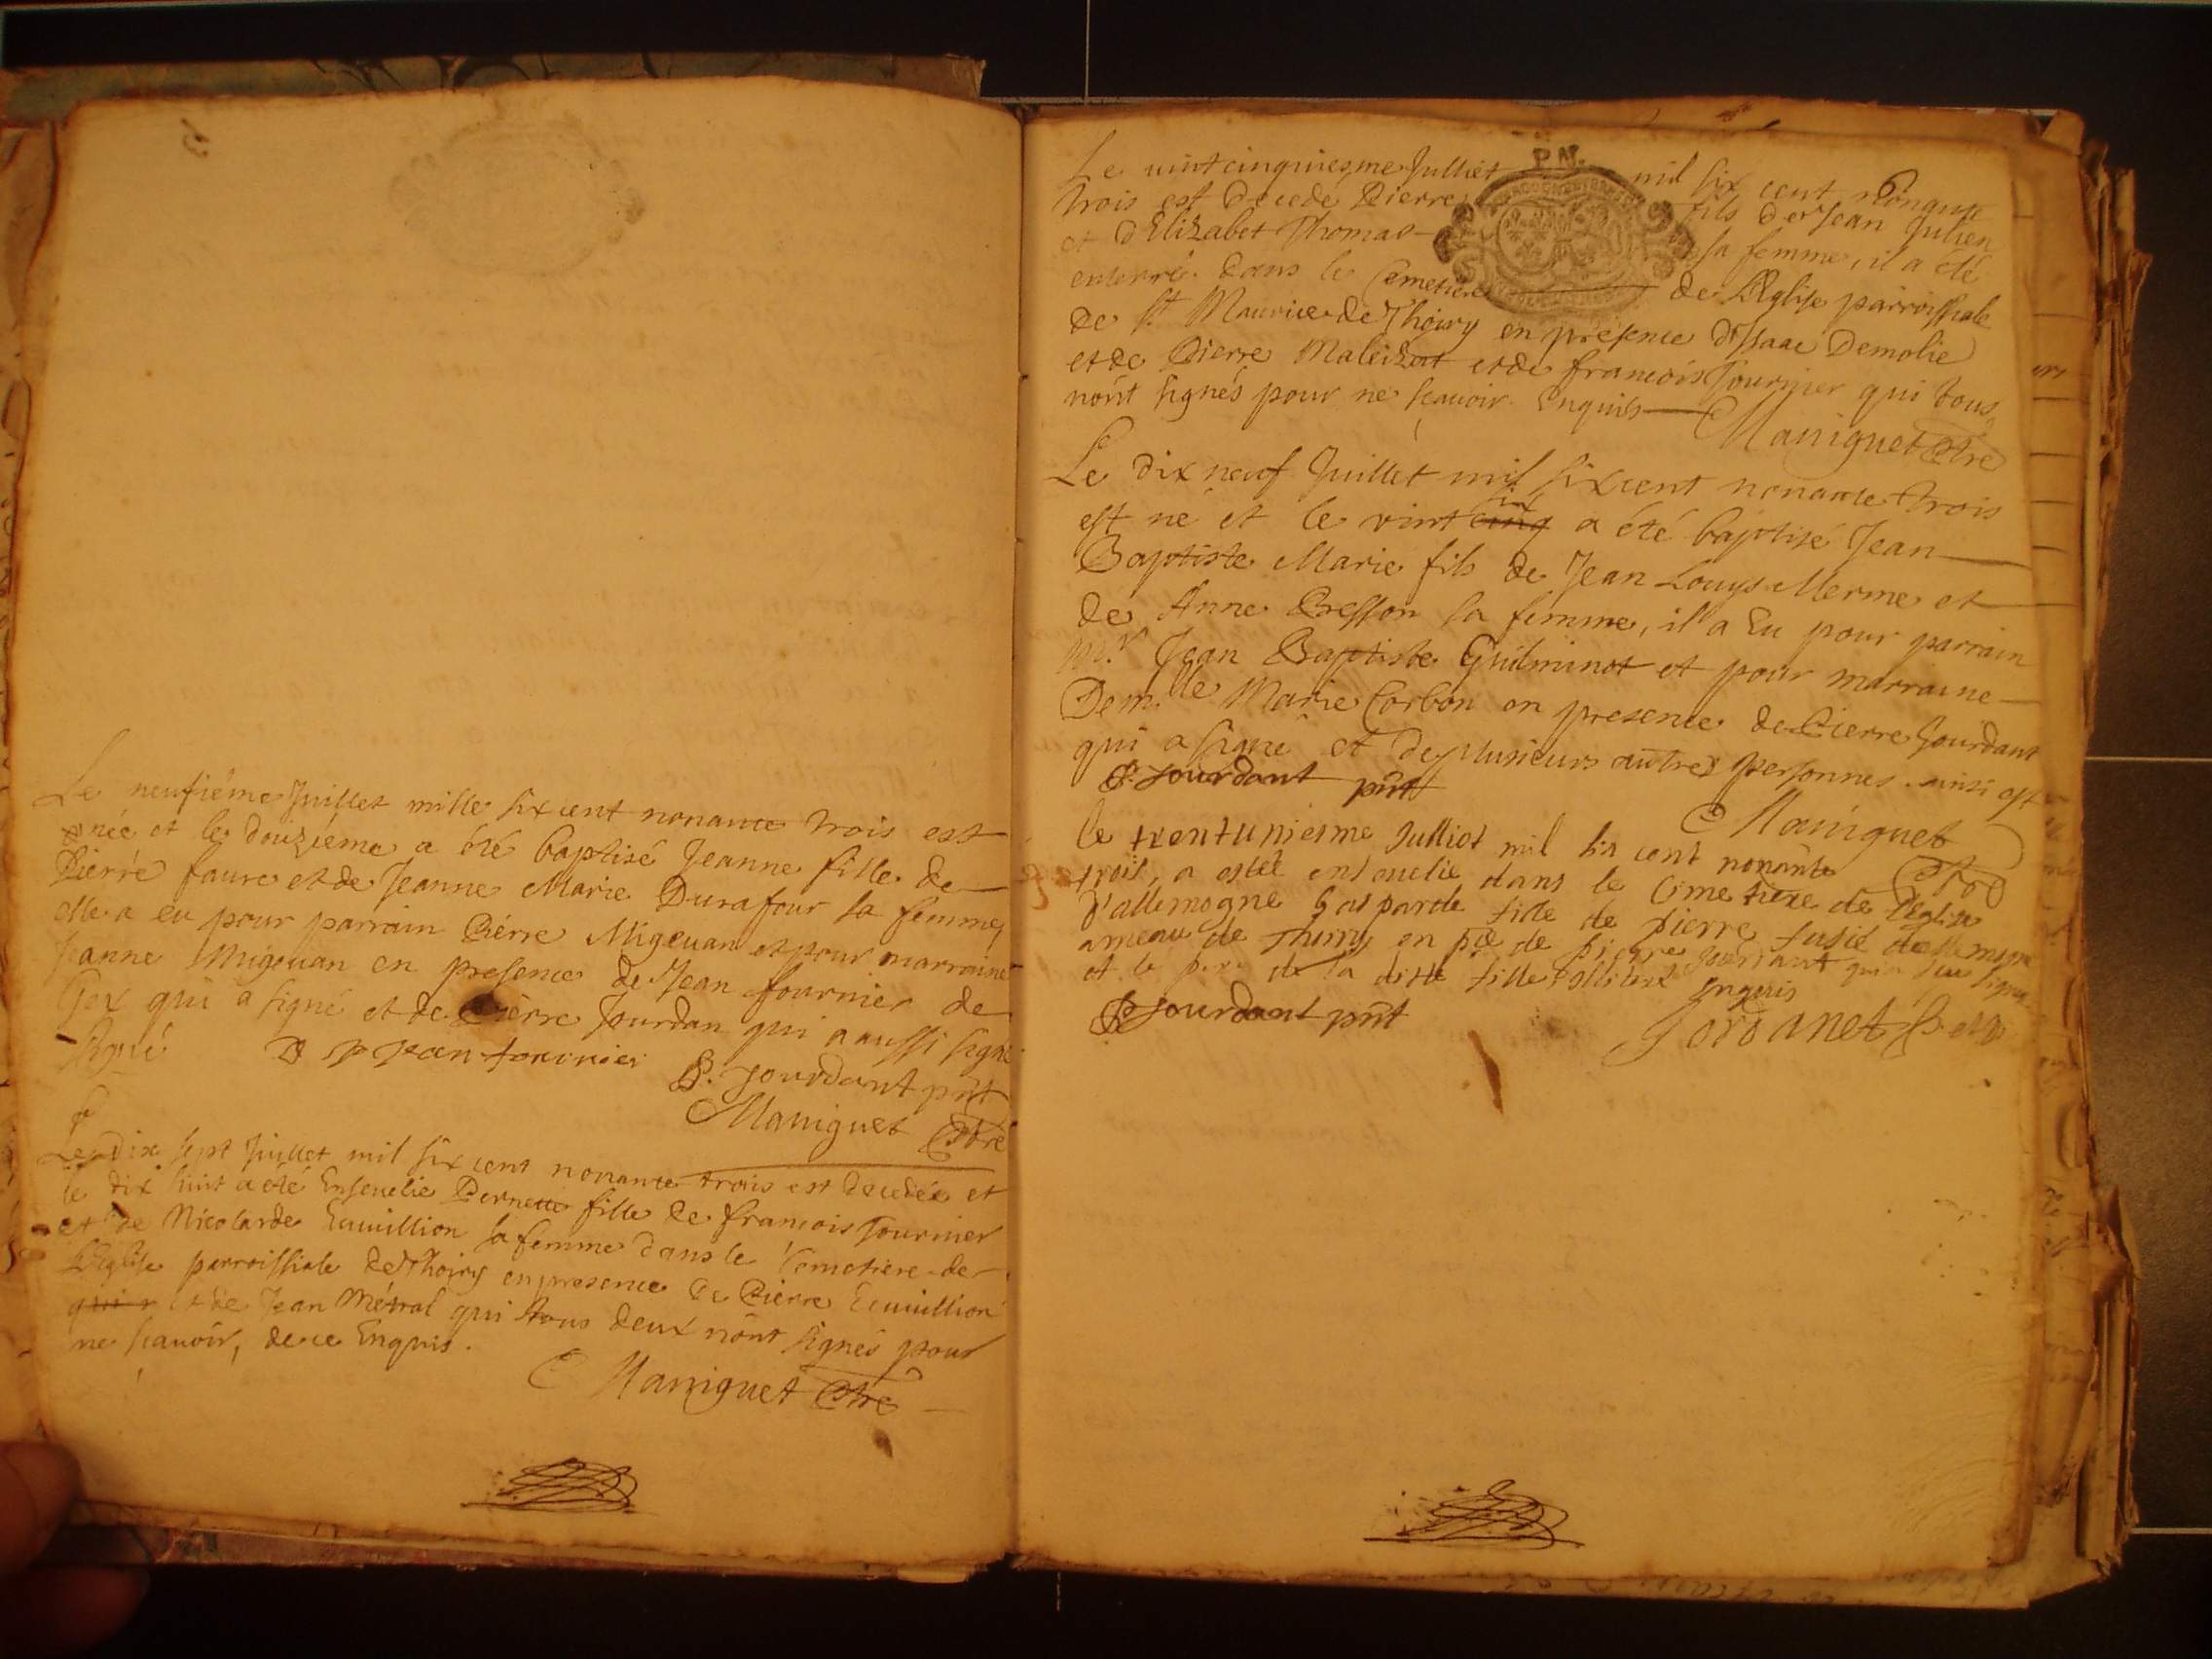 Le neufiéme Juillet mille six cent nonante trois est
née et le douziéme a été baptisé Jeanne fille de
Pierre faure et de Jeanne Marie Durafour sa femme,
elle a eu pour parrain Piérre Migeuan et pour marraine
Jeanne Migeuan en presence de Jean fournier de
Gex qui a signé et de Piérre Jourdan qui a aussi signé
signé Jean fournier
P. Jourdant pñt
Maniguet Ptre
Le dix sept Juillet mil six cent nonante trois est decedée et
le dix huit a été Enseuelie Pernette fille de francois fournier
et de Nicolarde Ecuuillion sa femme dans le Cemetiere de
L'Eglise parroissiale de Thoiry en presence de Pierre Ecuuillion
et de Jean Métral qui tous deux nónt signés pour
ne scauoir, de ce Enquis.
Maniguet Ptre
P.N.
Le uintcinquiesme Julliet mil six cent nonante
trois est decedé Pierre fils de Jean Julien
et d'Elizabet Thomas sa femme, il a été
enterré dans le Cemetiere de L'Eglise parroissiale
de St Maurice de Thoiry en presence d'Isaac Demolie
et de Pierre Maleizat et de francois fournier qui tous
nónt signés pour ne scauoir Enquis
Maniguet Ptre
Le dix neuf Juillet mil six cent nonante trois
six
est né et le vint cinq a été baptisé Jean
Baptiste Marie fils de Jean Louys Merme et
de Anne Bresson sa femme, il a Eu pour parrain
Mr Jean Baptiste Guilminot et pour marraine
Dem.lle Marie Corbon en presence de Pierre Jourdant
qui a signé et de plusieurs autres personnes. ainsi est
P. Jourdant pñt
Maniguet
Ptre
le trentuniesme Julliet mil six cent nonante
trois, a estée enseuelie dans le Cimetiere de l'Eglise
d'allemogne Gasparde fille de pierre d'allemogne
ameau de Thoiry en pñce de pierre Jourdant qui a signé
et le pere de la ditte fille Enquis
P Jourdant pñt